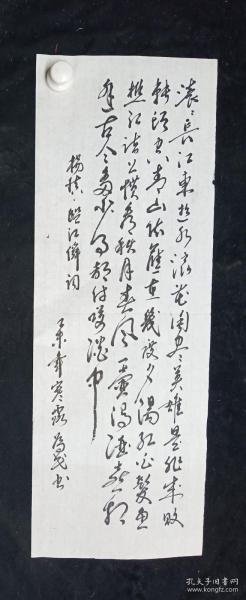 滚滚长江东逝水浪花淘尽英雄是非成败
转头空青山依旧在几度夕阳红白发渔
樵江渚上惯看秋月春风一壶浊酒喜相
逢古今多少事都付笑谈中
杨慎·临江仙词
乙未年寒露
孔夫子旧书网